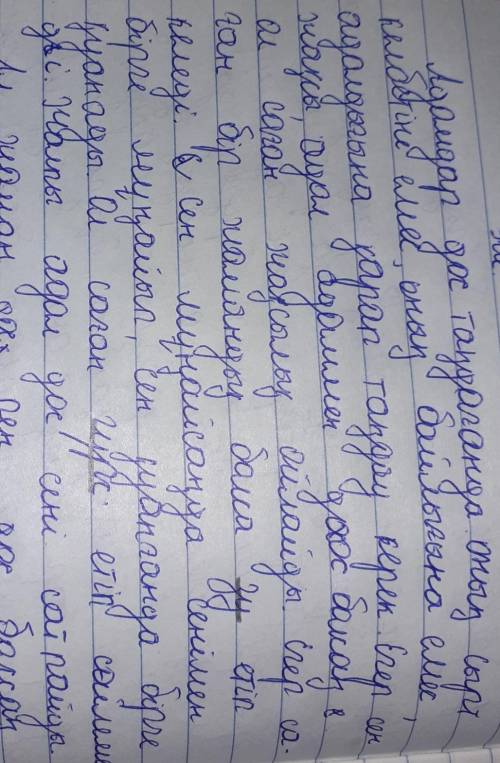 Адамдар дос таңдағанда оның сырт
келбетіне емес, оның байлығына емес,
адалдығына қарап таңдау керек. Егер сен
жақсы, адал адаммен дос болсаң
ол саған жақсылық ойлайды. Егер са-
ған бір жамандық бола етіп
келеді. сен мұңайсаңда сенімен
бірге мұңайып, сен қуанғанда бірге
қуанады. Ол саған етіп сөйлем
ді. Жалпы адал дос сені сатпайды
жаман дос